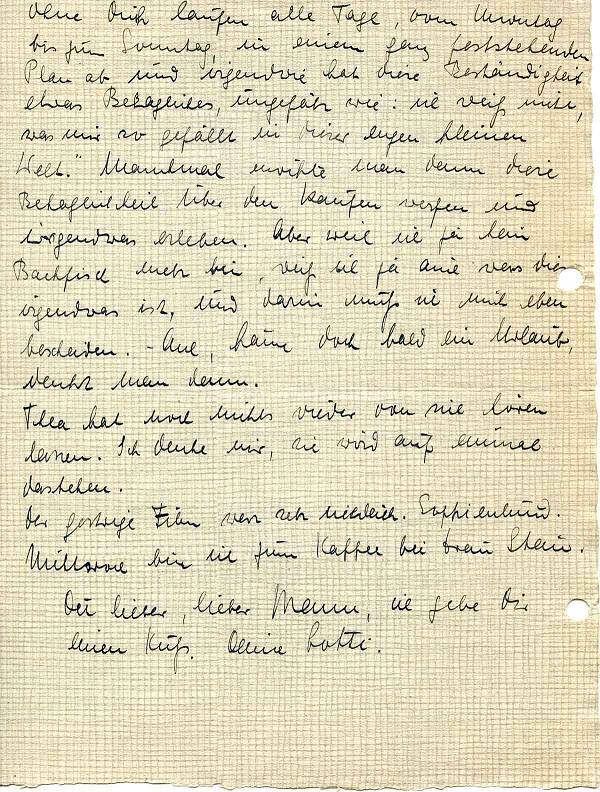 Ohne Dich laufen alle Tage, vom Montag
bis zum Sonntag, in einem ganz feststehenden
Plan ab und irgendwie hat diese Beständigkeit
etwas Behagliches, ungefähr wie: ich weiß nicht,
was mir so gefällt in dieser engen kleinen
Welt." Manchmal möchte man dann diese
Behaglichkeit über den Haufen werfen und
irgendwas erleben. Aber weil ich ja kein
Backfisch mehr bin, weiß ich ja auch was dies
irgendwas ist, und darin muß ich mich eben
bescheiden. - Ach, käme doch bald ein Urlaub,
denkt man dann.
Thea hat noch nichts wieder von sich hören
lassen. Ich denke mir, sie wird auf einmal
dastehen.
Der gestrige Film war sehr niedlich. Sophienlund.
Mittwoch bin ich zum Kaffee bei Frau Stein.
Du lieber, lieber Mann, ich gebe Dir
einen Kuß. Deine Lotti.